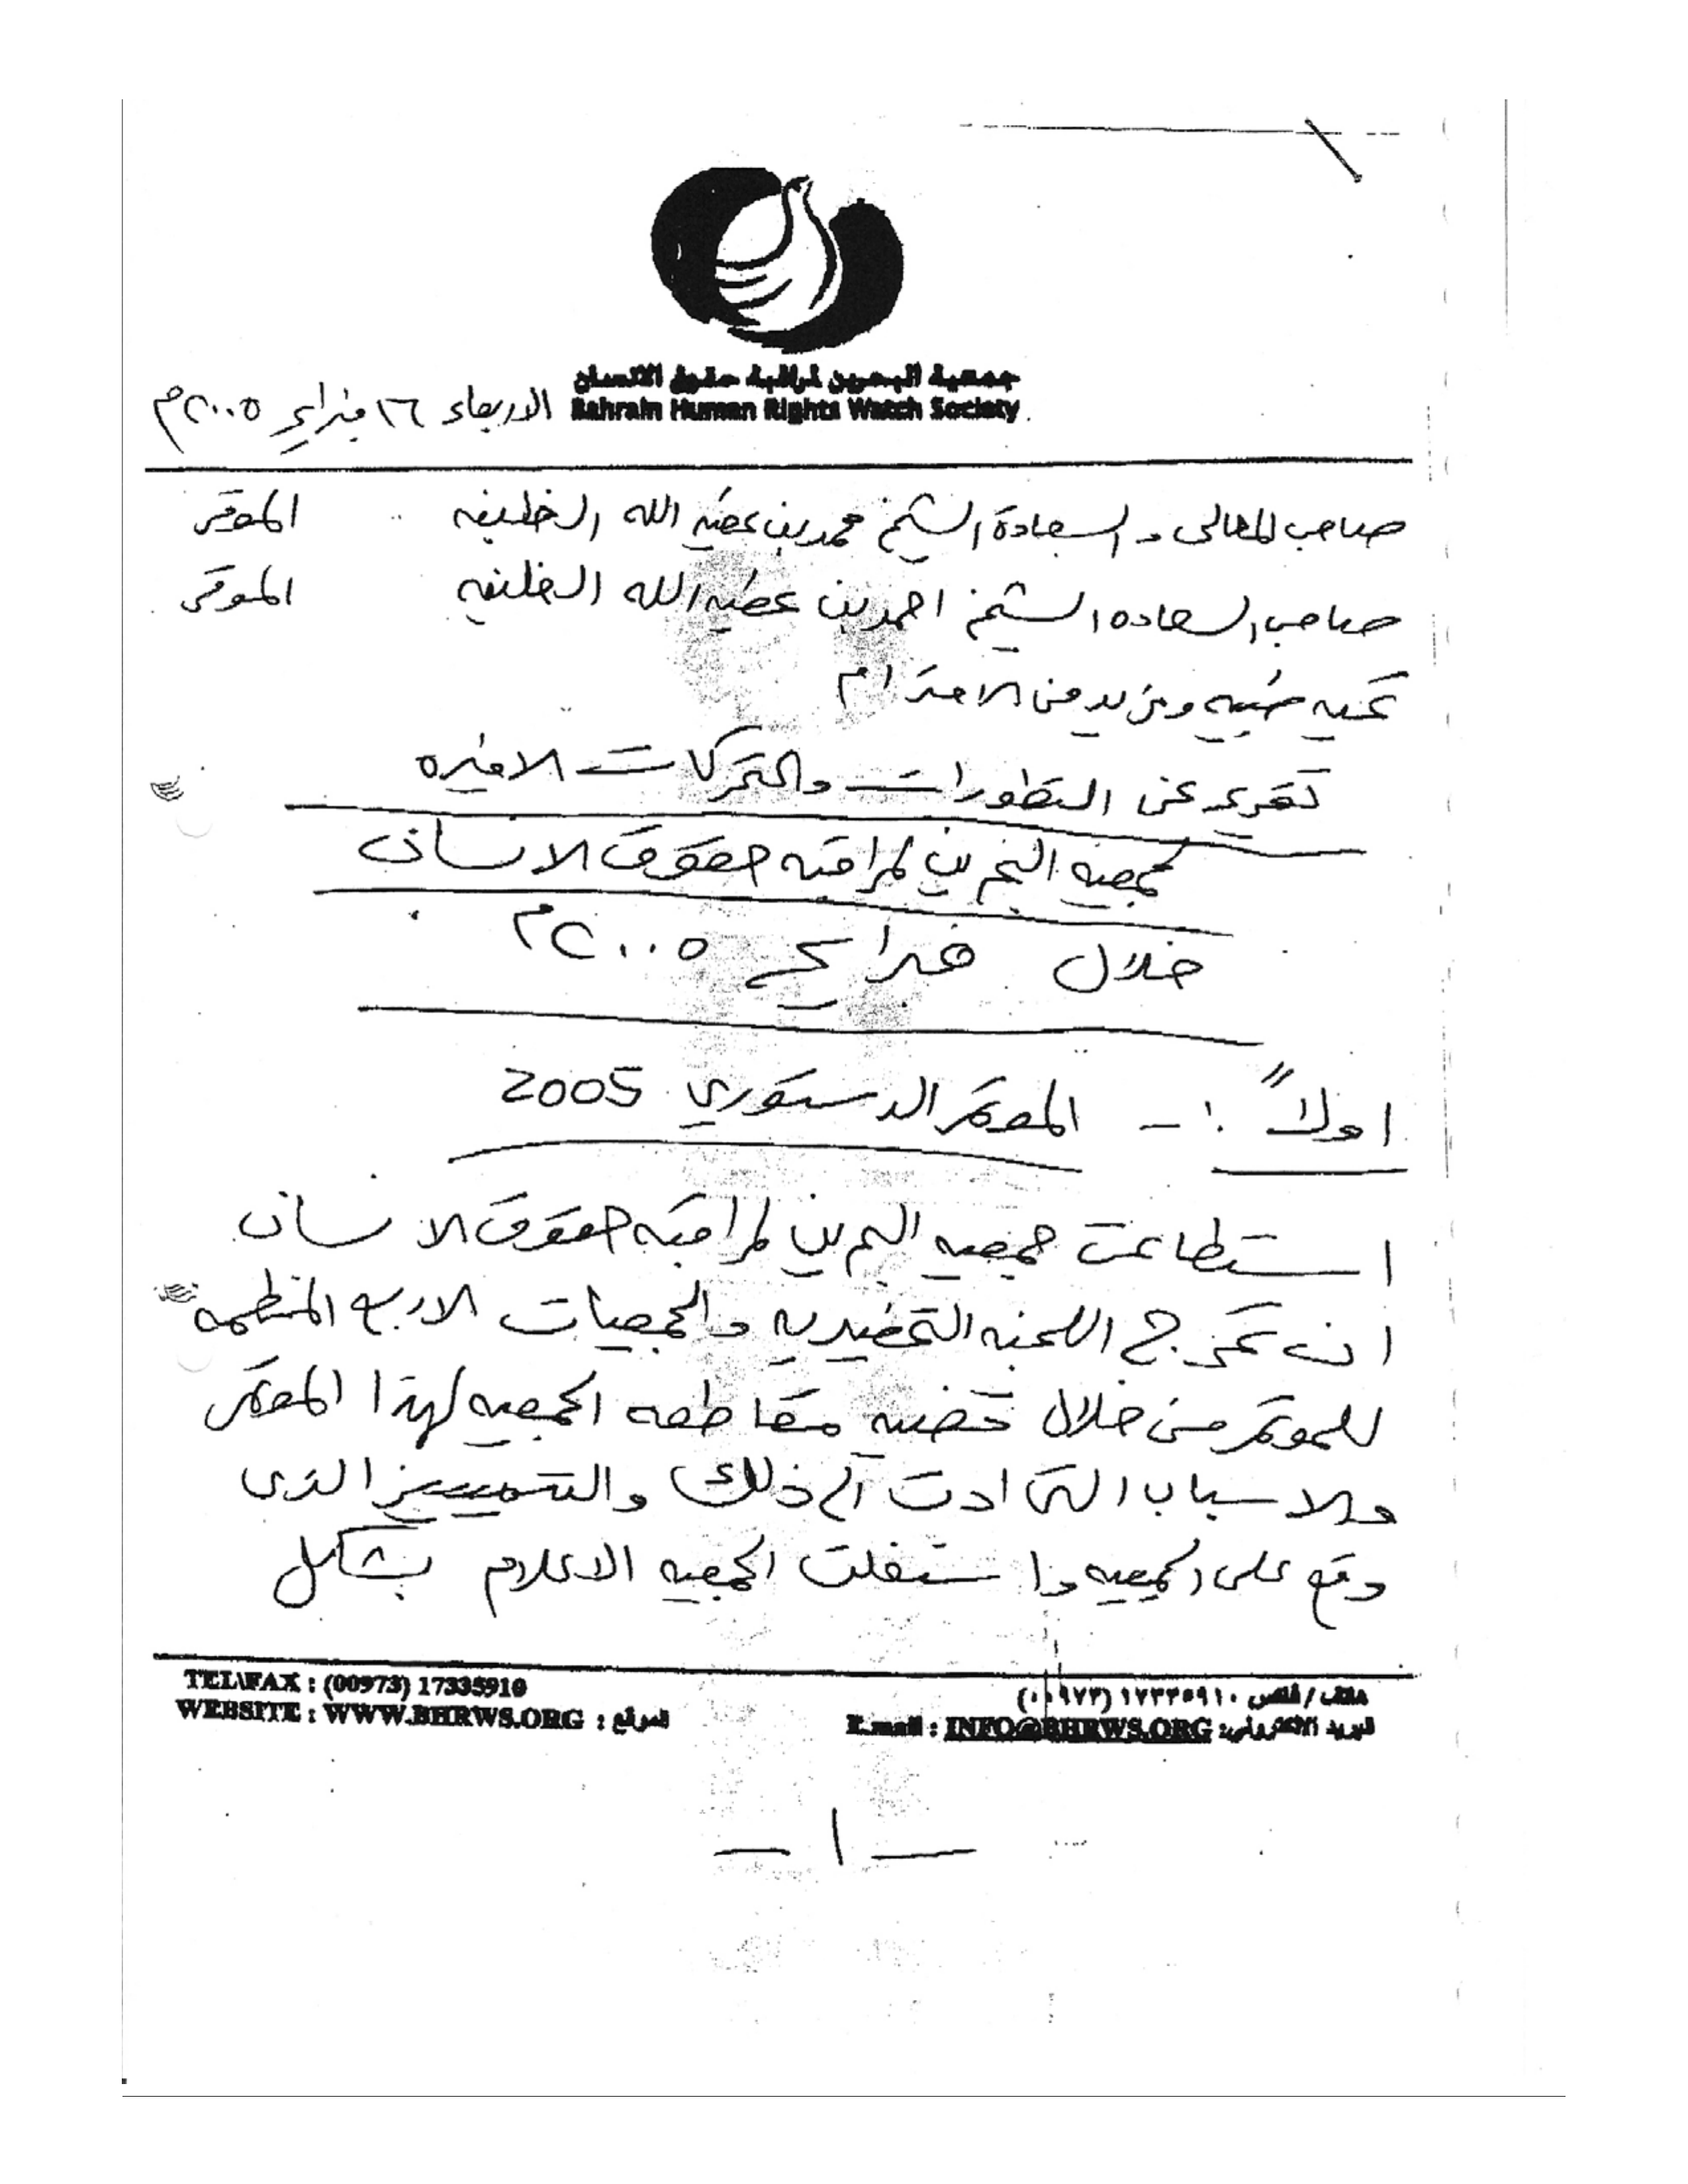 جمعية البحرين لمراقبة حقوق الانسان
Bahrain Human Rights Watch Society
الاربعاء ١٦ فبراير ٢٠٠٥م
صاحب المعالي والسعادة الشيخ محمد بن عطيه الله الخليفه الموقر
صاحب السعاده الشيخ احمد بن عطيه الله الخليفه الموقر
تحيه طيبه ومزيد من الاحترام
تقرير عن التطورات والتحركات الاخيره
لجمعيه البحرين لمراقبه حقوق الانسان
خلال فبراير ٢٠٠٥م
اولاً :- المؤتمر الدستوري 2005
استطاعت جمعيه البحرين لمراقبه حقوق الانسان
ان تحرج اللجنه التحضيريه والجمعيات الاربع المنظمه
للموتمر من خلال قضيه مقاطعه الجمعيه لهذا المؤتمر
والاسباب التي ادت الى ذلك والتمييز الذي
وقع على الجمعيه واستغلت الجمعيه الاعلام بشكل
TEL\FAX : (00973) 17335910
هاتف / فاكس ١٧٣٣٥٩١٠ (٠٠٩٧٣)
WEBSITE : WWW.BHRWS.ORG : الموقع
E.mail : INFO@BHRWS.ORG :البريد الالكتروني
— ١ —